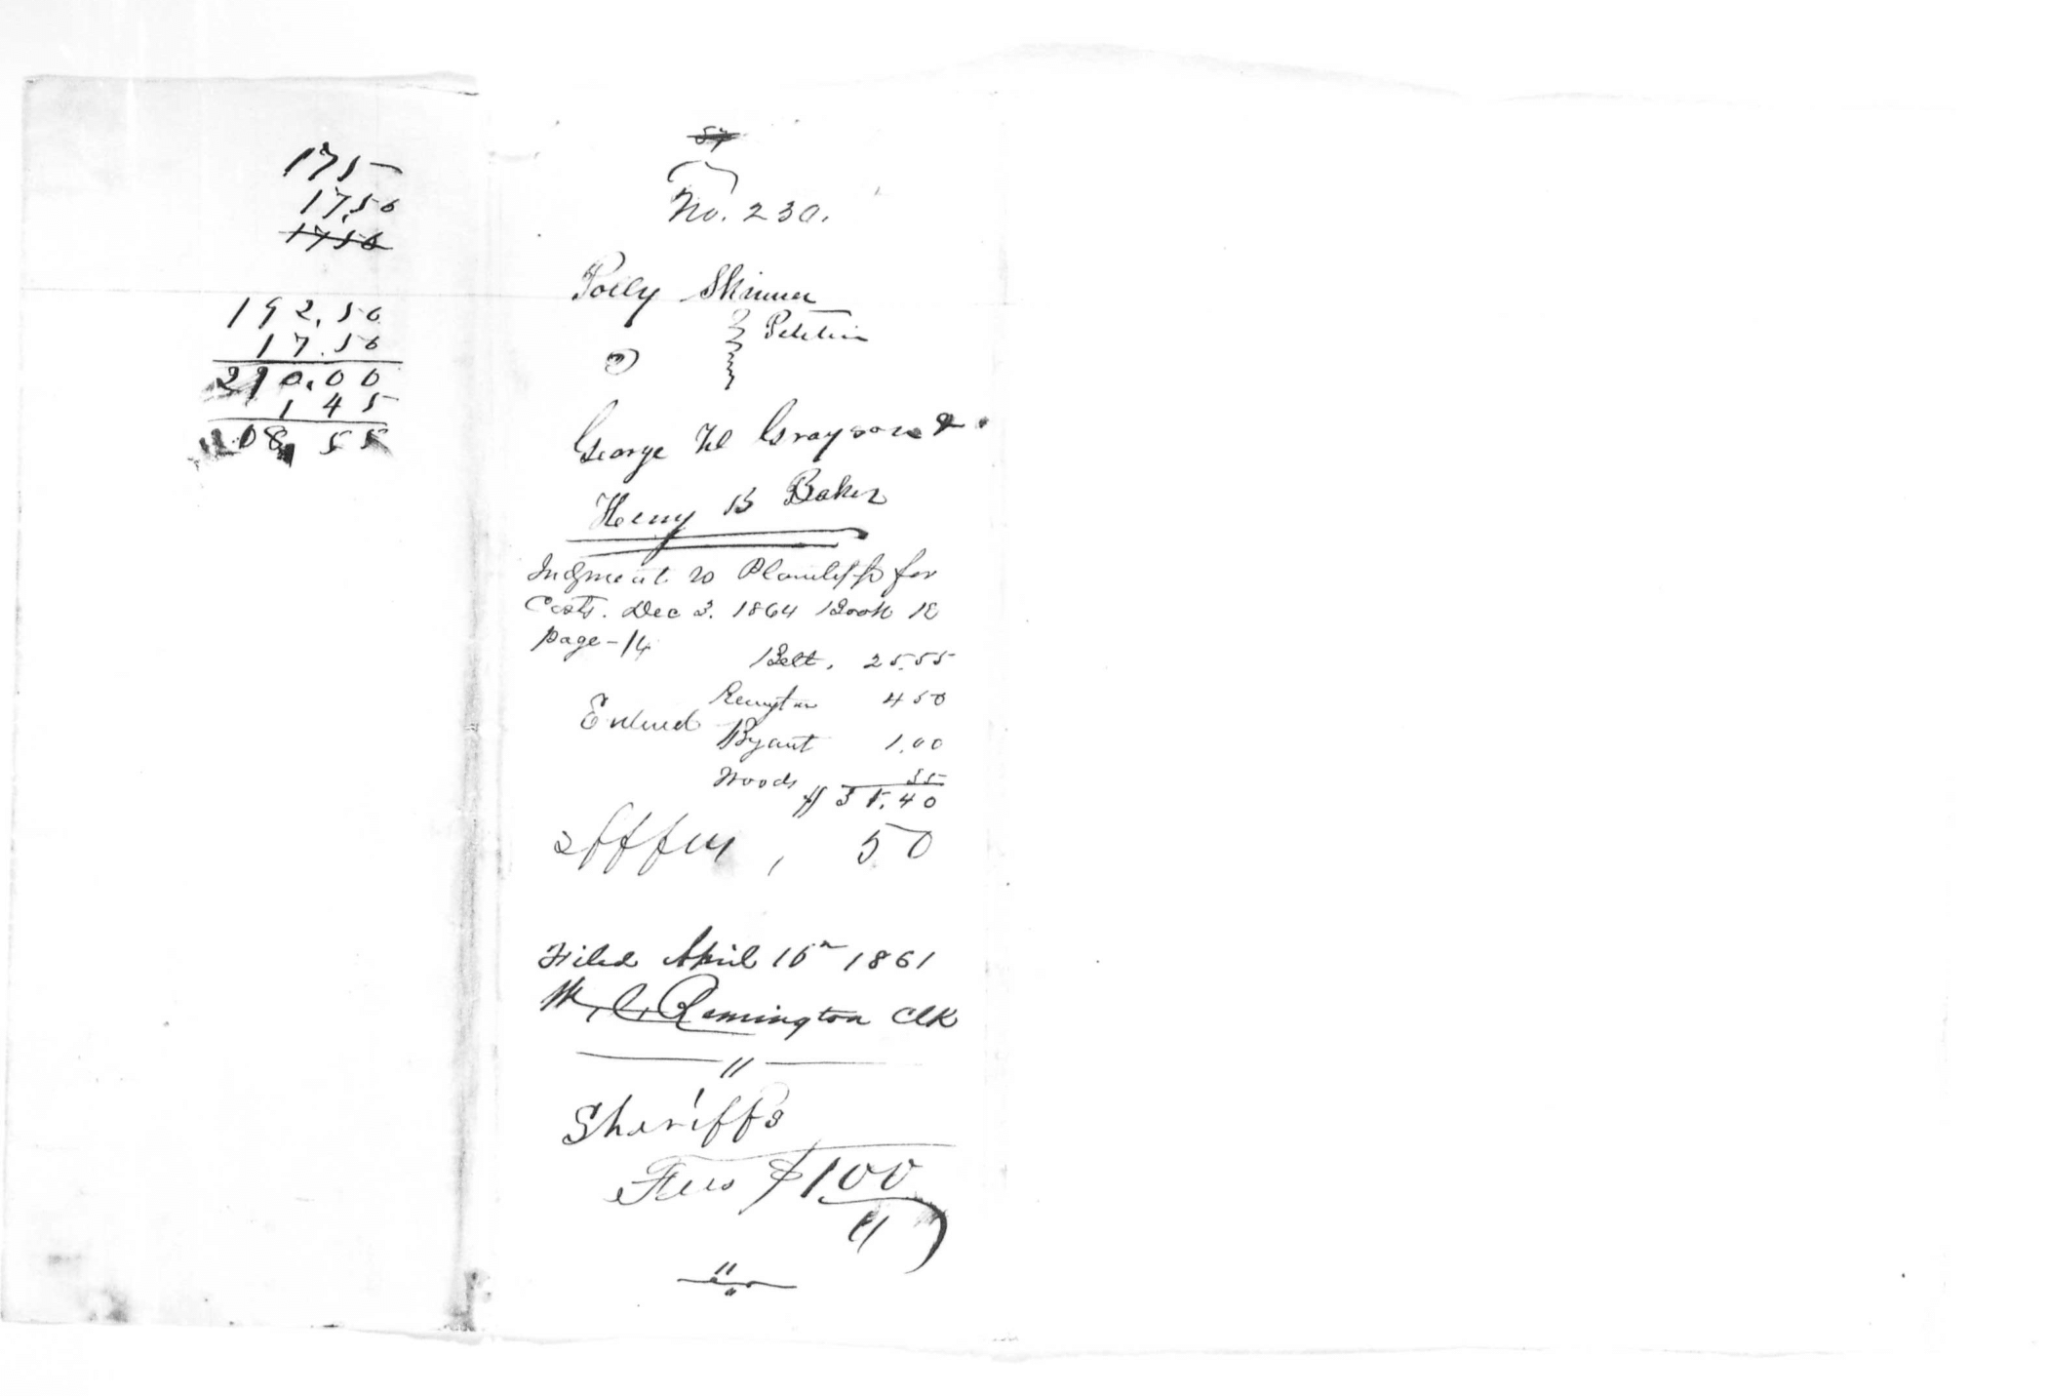 175
17.50
1750
192.50
17.50
210.00
1 45
08 55
57
No. 230.
Polly Skinner
} Petition
vs
George W Grayson &
Henry B Baker
Judgment vs Plaintiff for
Costs. Dec 3. 1864 Book E
page - 14
Belt. 25.55
Remington 4 50
Entered
Byant 1.00
Woods 35
$31.40
50
Filed April 16th 1861
W. C. Remington Clk
Sheriffs
Fees $1 00